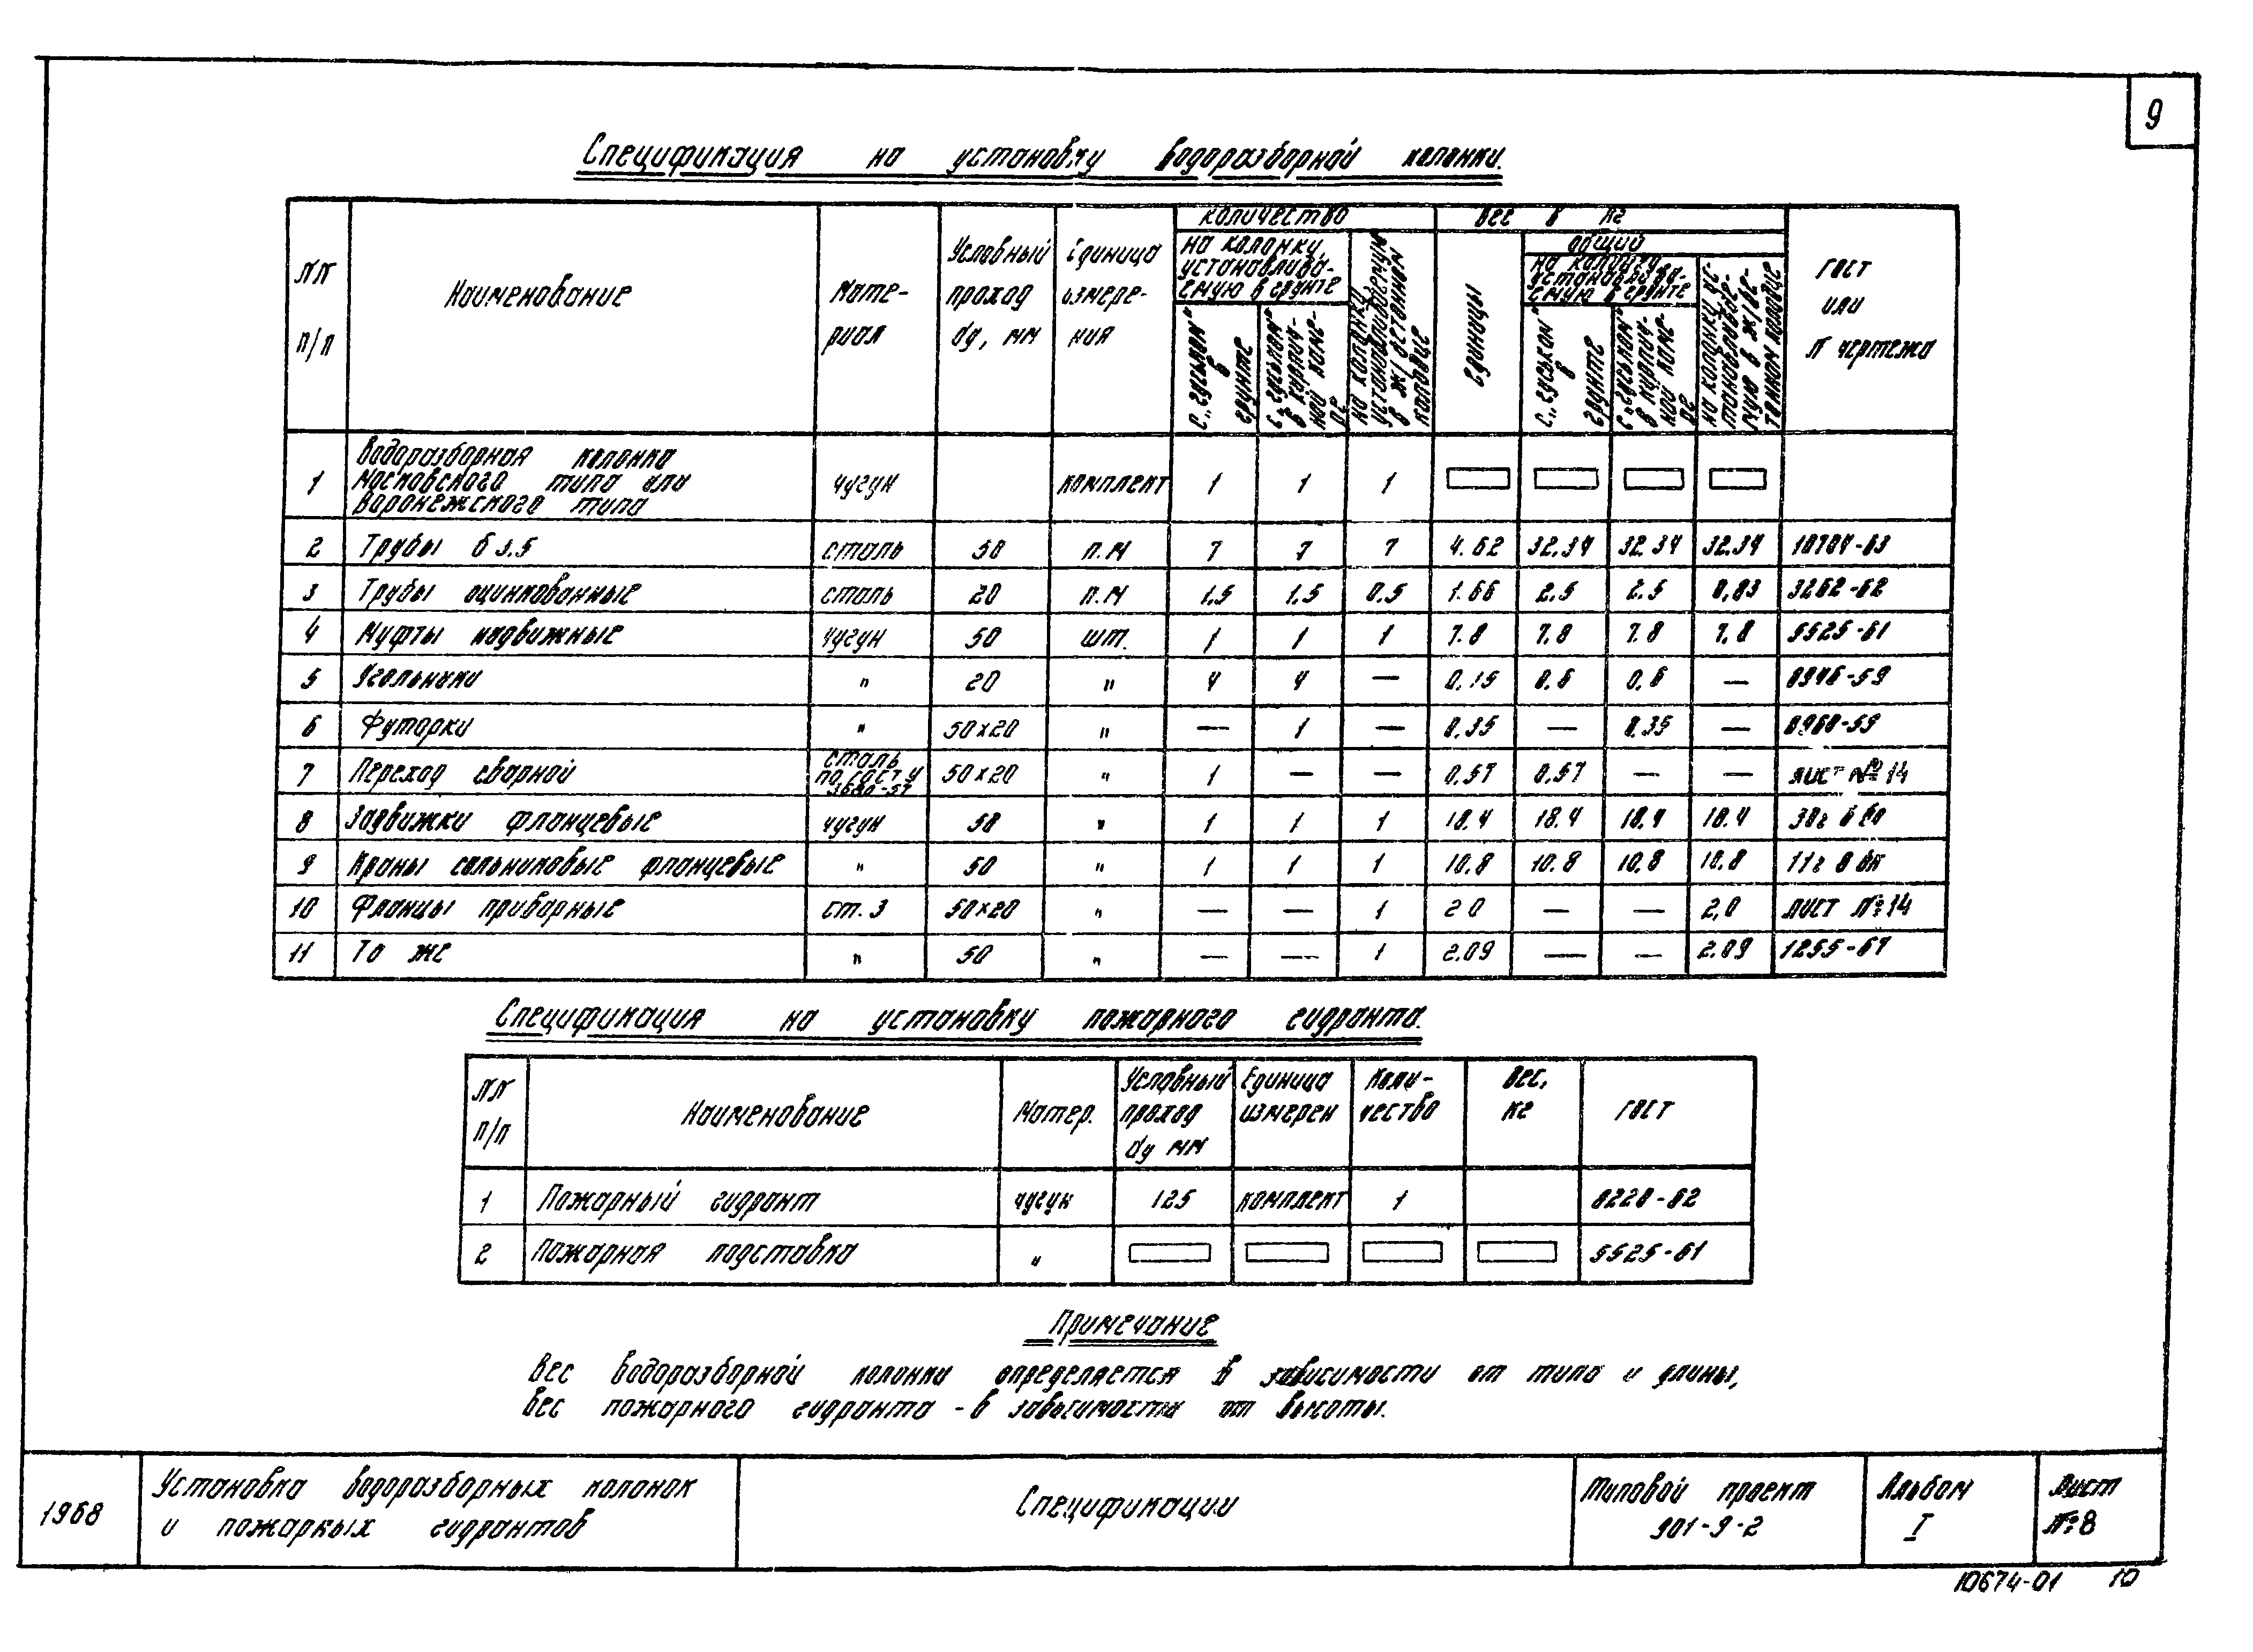 9
Спецификация на установку водоразборной колонки.
NN п/п
Наименование
Мате-
риал
Условный
проход
dу, мм
Единица
измере-
ния
количество
на колонку,
устанавлива-
емую в грунте
с „гуськом"
в
грунте
с „гуськом"
в кирпич-
ной каме-
ре
на колонку
устанавливаемую
в ж/бетонном
колодце
вес в кг
единицы
общий
на колонку,
устанавлива-
емую в грунте
с „гуськом"
в
грунте
с „гуськом"
в кирпич-
ной каме-
ре
на колонку ус-
танавливае-
мую в ж/бе-
тонном колодце
гост
или
N чертежа
1 Водоразборная колонка
московского типа или
воронежского типа
чугун комплект 1 1 1
2 Трубы б 3.5 сталь 50 п.м 7 7 7 4.62 32.34 32.34 32.34 10704-63
3 Трубы оцинкованные сталь 20 п.м 1.5 1.5 0.5 1.66 2.5 2.5 0,83 3262-62
4 Муфты надвижные чугун 50 шт. 1 1 1 7.8 7.8 7.8 7.8 5525-61
5 Угольники " 20 " 4 4 — 0.15 0.6 0,6 — 8946-59
6 Футорки " 50х20 " — 1 — 0.35 — 0.35 — 8960-59
7 Переход сварной сталь
по гост'у
380-57
50х20 " 1 — — 0.57 0.57 — — лист №14
8 Задвижки фланцевые чугун 50 " 1 1 1 18.4 18.4 18.4 18.4 30ч 6 бр
9 Краны сальниковые фланцевые " 50 " 1 1 1 10,8 10.8 10,8 10.8 11ч 8 бк
10 Фланцы приварные ст. 3 50х20 " — — 1 2 0 — — 2,0 лист №14
11 То же " 50 " — — 1 2.09 — — 2.09 1255-67
Спецификация на установку пожарного гидранта.
NN п/п
Наименование
Матер.
Условный
проход
dу мм
Единица
измерен
Коли-
чество
Вес,
кг
гост
1 Пожарный гидрант чугун 125 комплект 1 8220-62
2 Пожарная подставка " 5525-61
Примечание
Вес водоразборной колонки определяется в зависимости от типа и длины,
вес пожарного гидранта - в зависимости от высоты.
1968
Установка водоразборных колонок
и пожарных гидрантов
Спецификации
Типовой проект
901-9-2
Альбом
I
Лист
№8
10674-01 10